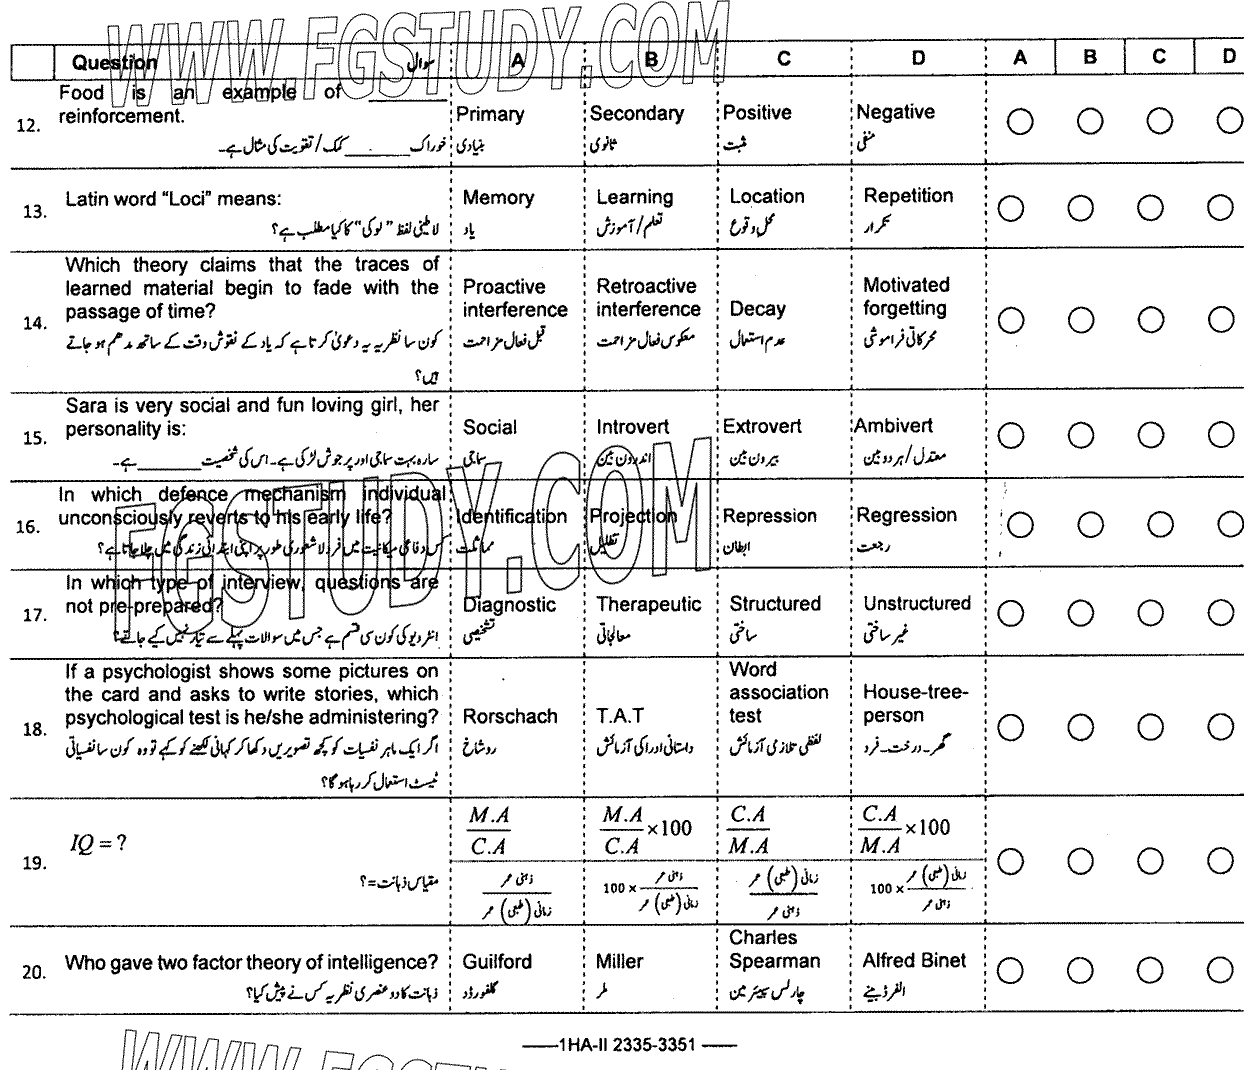 WWW.FGSTUDY.COM
Question سوال A B C D A B C D
12.
Food is an example of ________
reinforcement.
خوراک ________ کمک/تقویت کی مثال ہے۔
Primary
بنیادی
Secondary
ثانوی
Positive
مثبت
Negative
منفی
13.
Latin word “Loci” means:
لاطینی لفظ "لوکی" کا کیا مطلب ہے؟
Memory
یاد
Learning
تعلم/آموزش
Location
محل وقوع
Repetition
تکرار
14.
Which theory claims that the traces of
learned material begin to fade with the
passage of time?
کون سا نظریہ یہ دعویٰ کرتا ہے کہ یاد کے نقوش وقت کے ساتھ مدھم ہو جاتے
ہیں؟
Proactive
interference
قبل فعال مزاحمت
Retroactive
interference
معکوس فعال مزاحمت
Decay
عدم استعمال
Motivated
forgetting
محرکاتی فراموشی
15.
Sara is very social and fun loving girl, her
personality is:
سارہ بہت سماجی اور پرجوش لڑکی ہے۔ اس کی شخصیت ________ ہے۔
Social
سماجی
Introvert
اندرون بین
Extrovert
بیرون بین
Ambivert
معتدل/ہر دو بین
FGSTUDY.COM
16.
In which defence mechanism individual
unconsciously reverts to his early life?
کس دفاعی میکانیت میں فرد لاشعوری طور پر اپنی ابتدائی زندگی میں چلا جاتا ہے؟
Identification
مماثلت
Projection
تظلیل
Repression
ابطان
Regression
رجعت
17.
In which type of interview, questions are
not pre-prepared?
انٹرویو کی کون سی قسم ہے جس میں سوالات پہلے سے تیار نہیں کیے جاتے؟
Diagnostic
تشخیصی
Therapeutic
معالجاتی
Structured
ساختی
Unstructured
غیر ساختی
18.
If a psychologist shows some pictures on
the card and asks to write stories, which
psychological test is he/she administering?
اگر ایک ماہر نفسیات کو کچھ تصویریں دکھا کر کہانی لکھنے کو کہے تو وہ کون سا نفسیاتی
ٹیسٹ استعمال کر رہا ہو گا؟
Rorschach
روشاخ
T.A.T
داستانی ادراکی آزمائش
Word
association
test
لفظی تلازمی آزمائش
House-tree-
person
گھر۔درخت۔فرد
19.
IQ = ?
مقیاس ذہانت=؟
M.A
C.A
ذہنی عمر
زمانی (طبعی) عمر
M.A
C.A ×100
ذہنی عمر
زمانی (طبعی) عمر × 100
C.A
M.A
زمانی (طبعی) عمر
ذہنی عمر
C.A
M.A ×100
زمانی (طبعی) عمر
ذہنی عمر × 100
20.
Who gave two factor theory of intelligence?
ذہانت کا دو عنصری نظریہ کس نے پیش کیا؟
Guilford
گلفورڈ
Miller
ملر
Charles
Spearman
چارلس سپیئرمین
Alfred Binet
الفرڈ بینے
-----1HA-II 2335-3351 -----